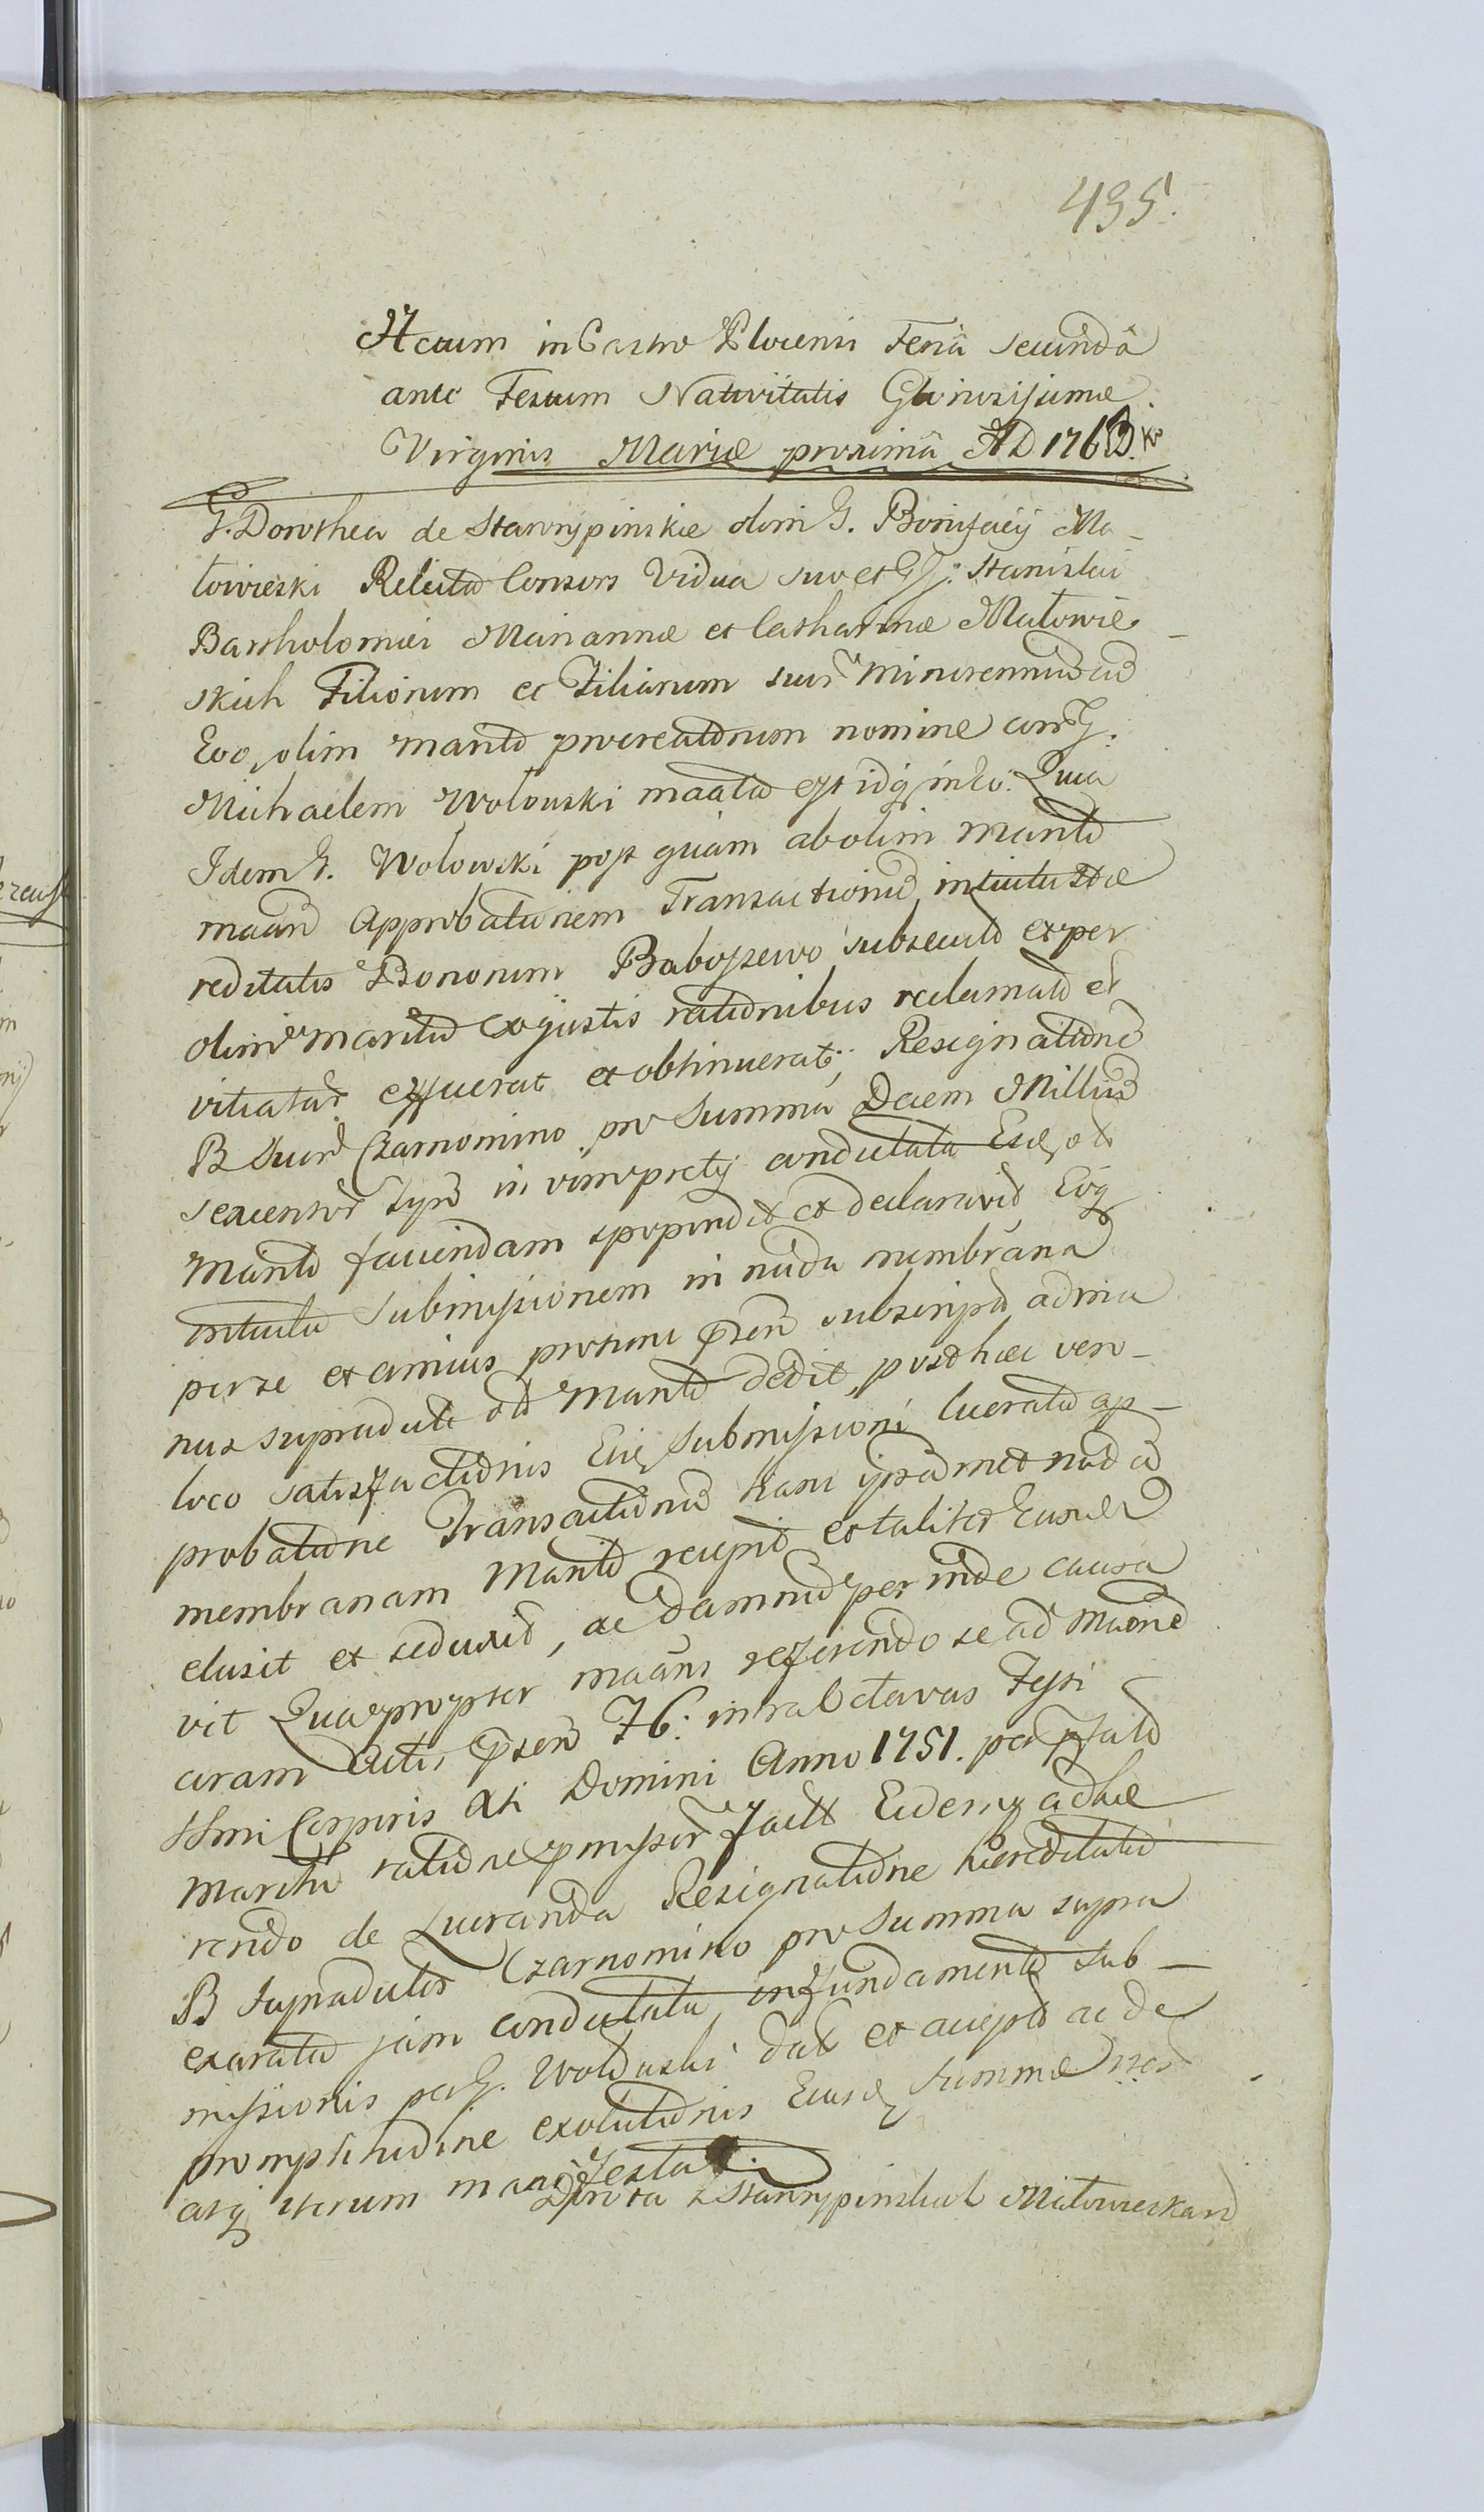 435.
Actum in Castro Plocensi Feriâ secundâ
ante Festum Nativitatis Gloriosissimæ
Virginis Mariæ proximâ AD 1763.
G. Dorothea de Starorypinskie olim G. Bonifacij Ma-
łowieski Relicta Consors Vidua suo et GG: Stanislai
Bartholomæi Mariannæ et Catharinæ Małowie-
skich Filiorum et Filiarum suar minorennium cũ
Eod, olim marito procreatorum nomine con G.
Michaelem Wołowski maata est idq in Eo: Quia
Idem G. Wołowski post quam ab olim marito
maañ Approbationem Transactionũ intuitu Hæ
reditatis Bonorum Baboszewo subsecut et per
olim maritũ ex justis rationibus reclamat et
vitiatar effuerat et obtinuerat; Resignationẽ
B suor Czarnomino pro Summa Decem Millium
sexcentor in vim pretij condictata Eid, ol
Marito faciendam spopondit et declaravit Eoq
intuitu Submissionem in nuda membrana
per se et amicus pro tunc subscript ad ma
nus supradicti ol Mariti dedit, post hac vero
loco satisfactionis Eid Submissioni lucrata ap-
probatione Transactionũ hanc ipsamet nudã
membranam Marito recepit et taliter Eund
elusit et seduxit, ac damnũ per inde causa
vit Quapropter maans referendo se ad maõnẽ
coram Actis Pten intra Octavas Festi
SSmi Corporis Xti Domini Anno 1751. per
Marithũ ratione pmissor fact Eidemq adhæ
rendo de Lucranda Resignatione hæreditatũ
B supradictor Czarnomino pro Summa supra
exarata jam condictata, in fundamento Sub-
missionis per G. Wołowski dat et accept ac de
promptitudine exolutionis Eiusd Summæ
atq iterum manifestat.
Dorota z Starorypinskich Małowieska